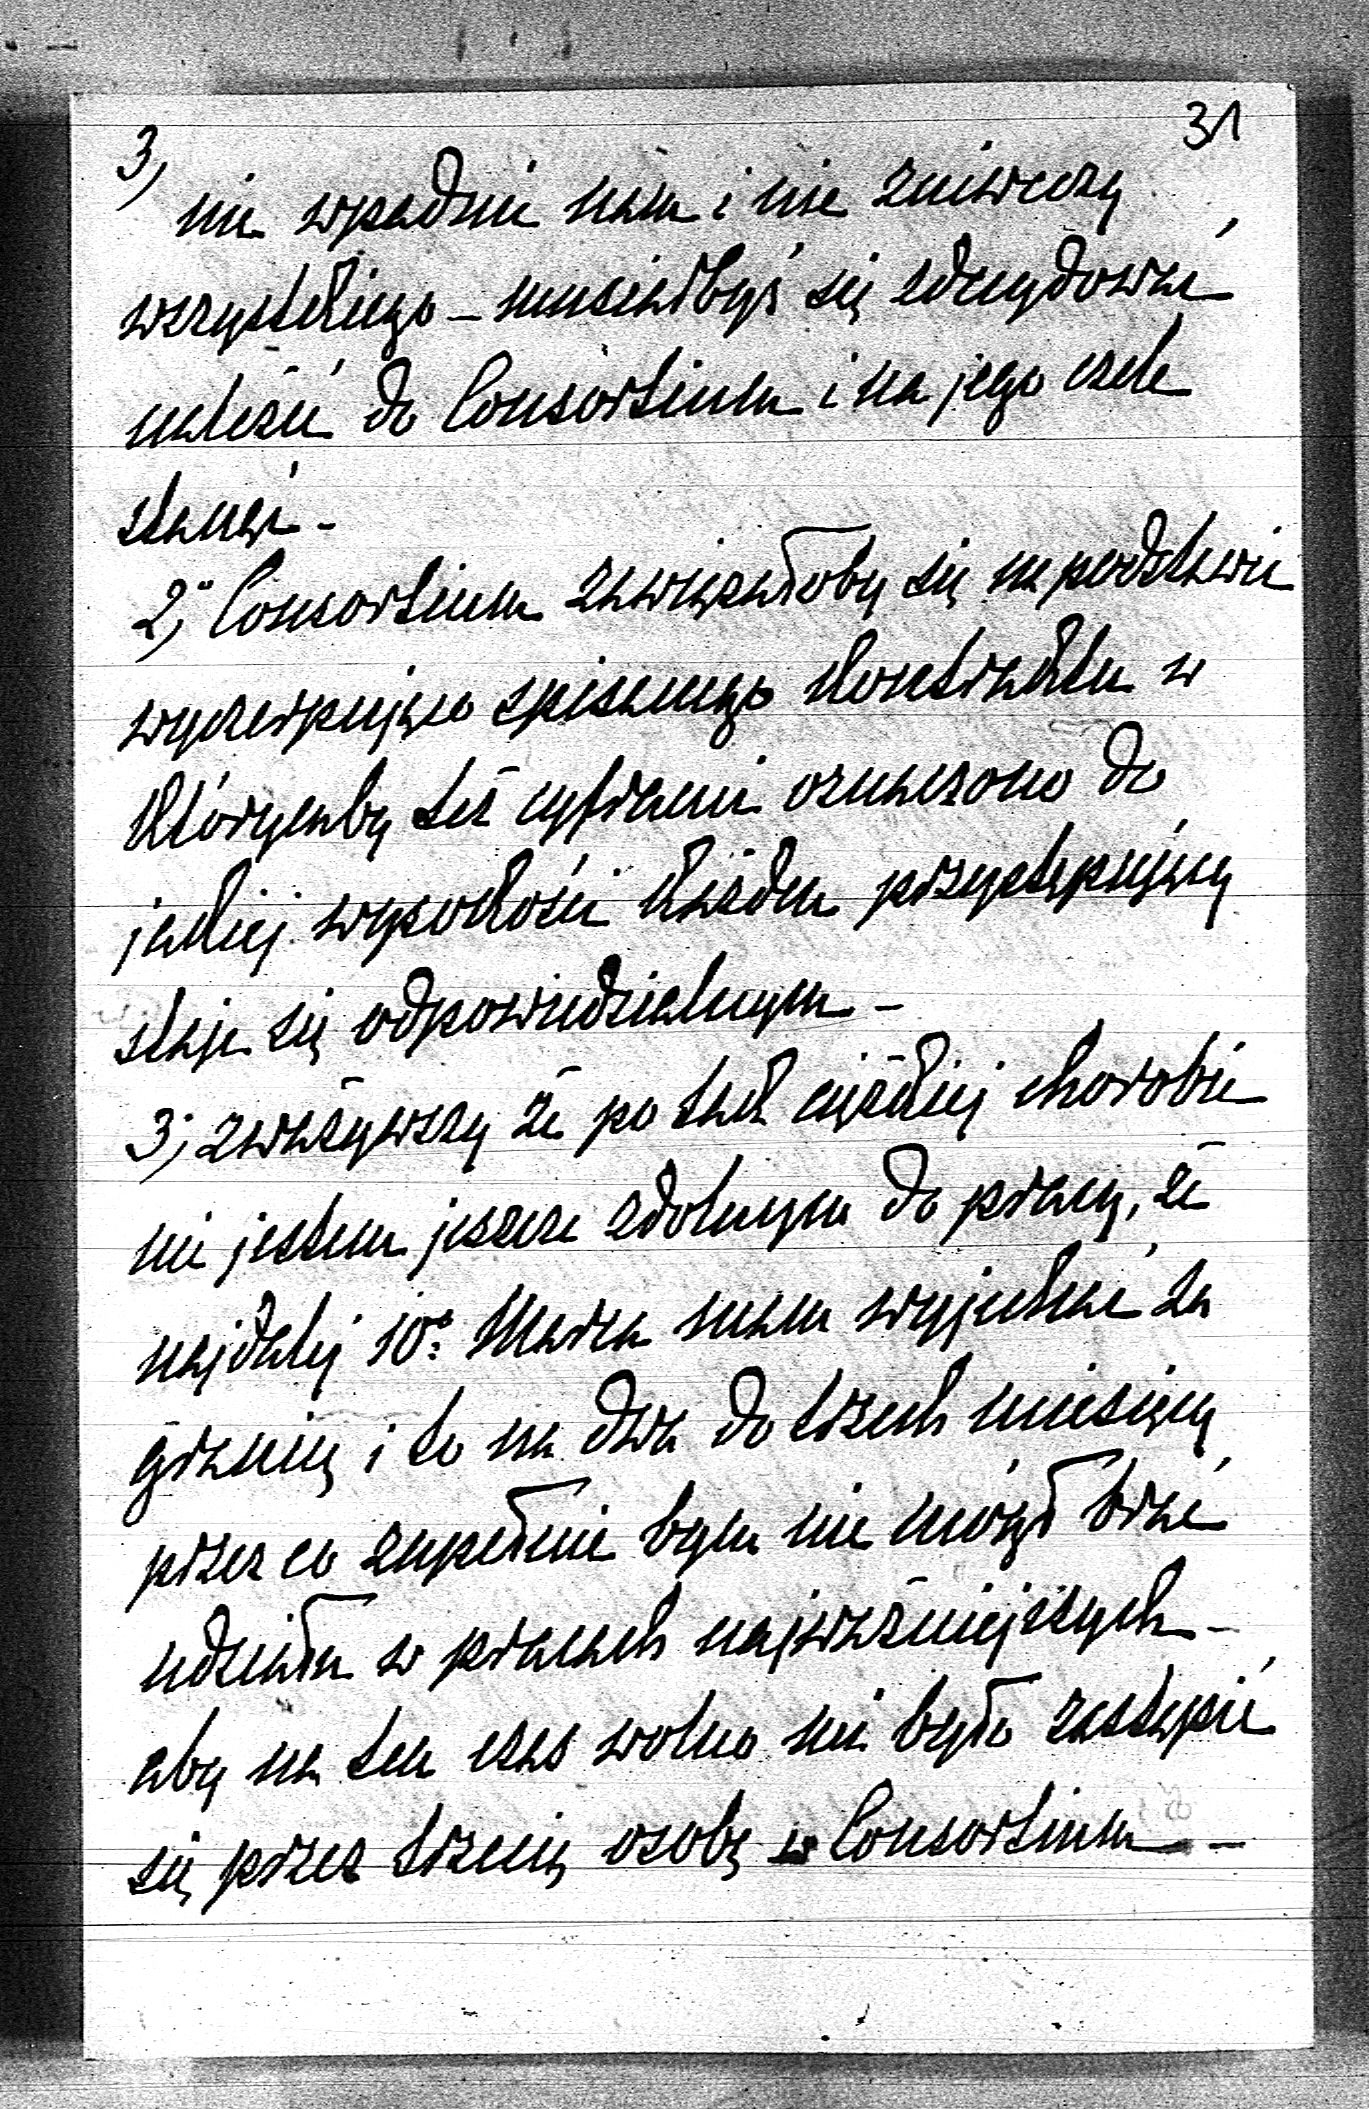 31
3,
nie wpadnie nam i nie zniweczy
wszystkiego – musiałbyś się zdecydować
należeć do Consortium i na jego czele
stanąć –
2, Consortium zawiązałoby się na podstawie
wyczerpująco spisanego kontraktu w
którymby też cyframi oznaczono do
jakiej wysokości każden przystępujący
staje się odpowiedzialnym –
3, zważywszy że po tak ciężkiej chorobie
nie jestem jeszcze zdolnym do pracy, że
najdalej 10º Marca mam wyjechać za
granicę i to na dwa do trzech miesięcy
przez co zupełnie bym nie mógł brać
udziału w pracach najważniejszych –
aby na ten czas wolno mi było zastąpić
się przez trzecią osobę w Consortium –